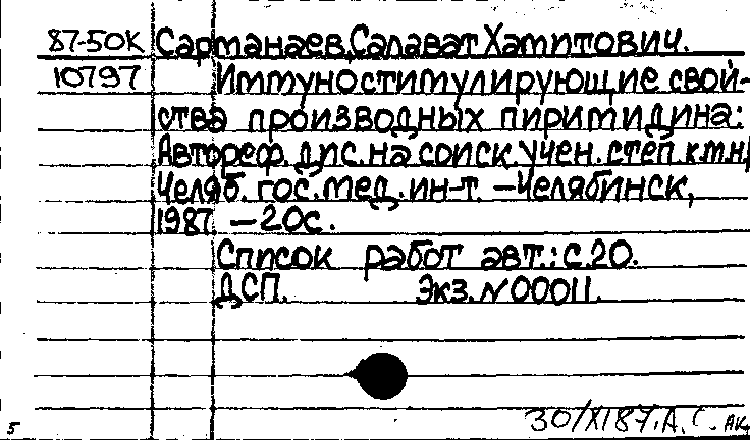 87-50К Сарманаев, Салават Хамитович.
10797 Иммуностимулирующие свой-
ства производных пиримидина:
Автореф. дис. на соиск. учен. степ. к.м.н/
Челяб. гос. мед. ин-т. – Челябинск,
1987 – 20с.
Список работ авт.: с.20.
ДСП. Экз. N 00011.
30/XI87. А.С. АК
5